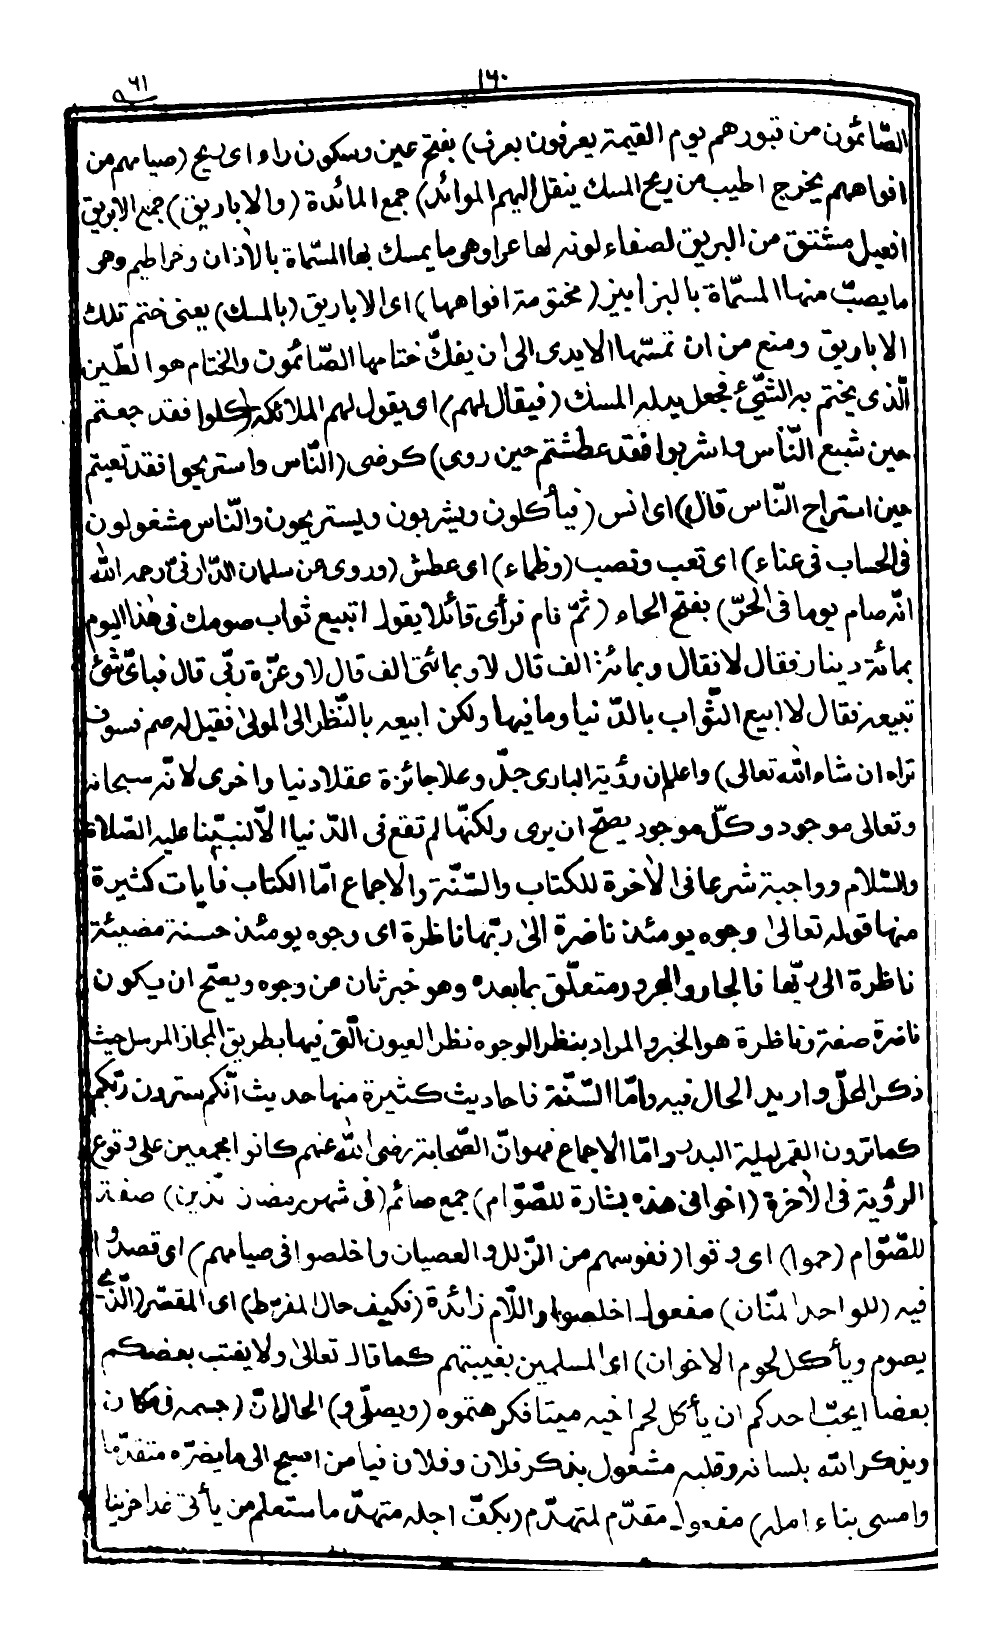 ١٦٠
٦١
الصّائمون من قبورهم يوم القيمة يعرفون بعرف) بفتح عين وسكون راء اى ريح (صيامهم من
افواههم يخرج اطيب من ريح المسك ينقل اليهم الموائد) جمع المائدة (والاباريق) جمع الابريق
افعيل مشتق من البريق لصفاء لونه لها عرا وهى ما يمسك بها المسمّاة بالآذان وخراطيم وهى
ما يصبّ منها المسمّاة بالبزابيز (مختومة افواهها) اى الاباريق (بالمسك) يعنى ختم تلك
الاباريق ومنع من ان تمسّها الايدى الى ان يفكّ ختامها الصّائمون والختام هو الطّين
الّذى يختم به الشّىء فجعل بدله المسك (فيقال لهم) اى يقول لهم الملائكة (كلوا فقد جعتم
حين شبع النّاس واشربوا فقد عطشتم حين روى) كرضى (النّاس واستريحوا فقد تعبتم
حين استراح النّاس قال) اى انس (فيأكلون ويشربون ويستريحون والنّاس مشغولون
فى الحساب فى عناء) اى تعب ونصب (وظماء) اى عطش (وروى عن سلمان الدّارنىّ رحمه الله
انّه صام يوما فى الحرّ) بفتح الحاء (ثمّ نام فرأى قائلا يقول اتبيع ثواب صومك فى هذا اليوم
بمائة دينار فقال لا فقال وبمائة الف قال لا وبمائتى الف قال لا وعزّة ربّى قال فباىّ شئ
تبيعه فقال لا ابيع الثّواب بالدّنيا وما فيها ولكن ابيعه بالنّظر الى المولى فقيل له صم فسوف
تراه ان شاء الله تعالى) واعلم ان رؤية البارى جلّ وعلا جائزة عقلا دنيا واخرى لانّه سبحانه
وتعالى موجود وكلّ موجود يصحّ ان يرى ولكنّها لم تقع فى الدّنيا الّا لنبيّنا عليه الصّلاة
والسّلام وواجبة شرعا فى الآخرة للكتاب والسّنّة والاجماع امّا الكتاب فآيات كثيرة
منها قوله تعالى وجوه يومئذ ناضرة الى ربّها ناظرة اى وجوه يومئذ حسنة مضيئة
ناظرة الى ربّها فالجار والمجرور متعلّق بما بعده وهو خبر ثان من وجوه ويصحّ ان يكون
ناضرة صفة وناظرة هو الخبر والمراد بنظر الوجوه نظر العيون الّتى فيها بطريق المجاز المرسل حيث
ذكر المحلّ واريد الحال فيه وامّا السّنّة فاحاديث كثيرة منها حديث انّكم سترون ربّكم
كما ترون القمر ليلة البدر وامّا الاجماع فهو انّ الصّحابة رضى الله عنهم كانوا مجمعين على وقوع
الرؤية فى الآخرة (اخوانى هذه بشارة للصّوّام) جمع صائم (فى شهر رمضان الّذين) صفة
للصّوّام (حموا) اى وقوا (نفوسهم من الزّلل والعصيان واخلصوا فى صيامهم) اى قصدوا
فيه (للواحد المنّان) مفعول اخلصوا واللّام زائدة (فكيف حال المفرّط) اى المقصّر (الّذى
يصوم ويأكل لحوم الاخوان) اى المسلمين بغيبتهم كما قال تعالى ولا يغتب بعضكم
بعضا ايحبّ احدكم ان يأكل لحم اخيه ميتا فكرهتموه (ويصلّى و) الحال انّ (جسمه فى مكان
ويذكر الله بلسانه وقلبه مشغول بذكر فلان وفلان فيا من اصبح الى ما يضرّه متقدّما
وامسى بناء امله) مفعول مقدّم لمتهدّم (بكفّ اجله متهدّما ستعلم من يأتى غدا حزينا